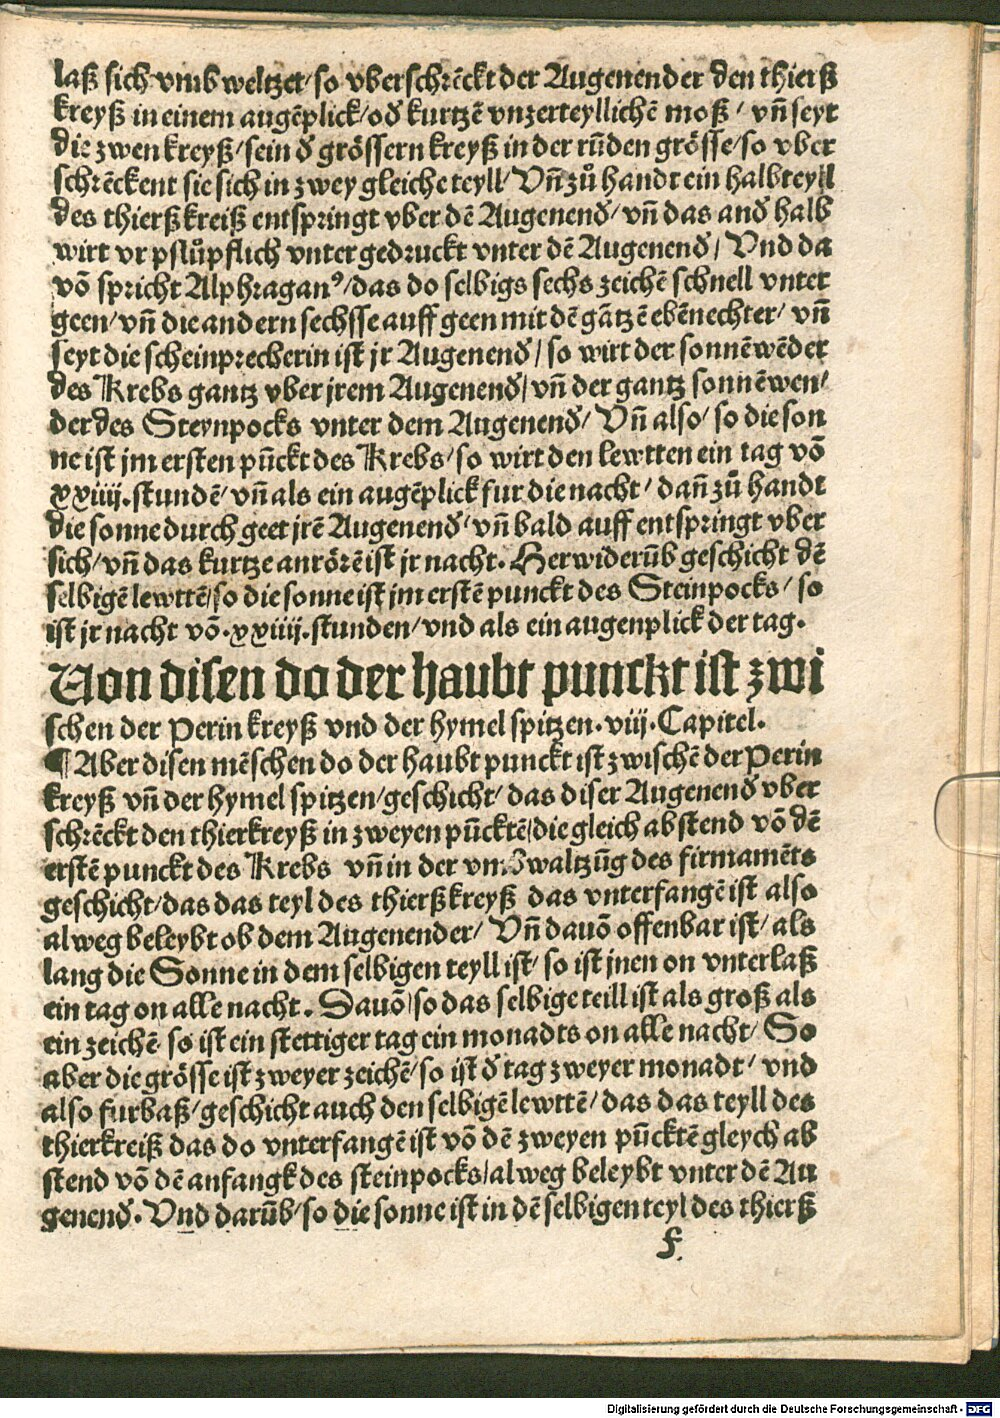 laß sich vmb weltzet/ so vberschrēckt der Augenender den thierß
kreyß in einem augēplick/ od̄ kurtzē vnzerteyllichē moß/ vn̄ seyt
die zwen kreyß/ sein d̄ grössern kreyß in der rūden grösse/ so vber
schrēckent sie sich in zwey gleiche teyll/ Vn̄ zů handt ein halbteyll
des thierßkreiß entspringt vber dē Augenend̄/ vn̄ das and̄ halb
wirt vr pslůpflich vnter gedruckt vnter dē Augenend̄/ Vnd da
vō spricht Alphraganꝰ/ das do selbigs sechs zeichē schnell vnter
geen/ vn̄ die andern sechsse auff geen mit dē gātzē ebēnechter/ vn̄
seyt die scheinprecherin ist jr Augenend̄/ so wirt der sonnēwēder
des Krebs gantz vber jrem Augenend̄/ vn̄ der gantz sonnēwen/
der des Steynpocks vnter dem Augenend̄/ Vn̄ also/ so die son
ne ist jm ersten pūckt des Krebs/ so wirt den lewtten ein tag vō
xxiiij. stundē/ vn̄ als ein augēplick fur die nacht/ dan̄ zů handt
die sonne durch geet jrē Augenend̄/ vn̄ bald auff entspringt vber
sich/ vn̄ das kurtze anrörē ist jr nacht. Herwiderūb geschicht dē
selbigē lewttē/ so die sonne ist jm erstē punckt des Steinpocks/ so
ist jr nacht vō .xxiiij. stunden/ vnd als ein augenplick der tag.
Von disen do der haubt punckt ist zwi
schen der Perin kreyß vnd der hymel spitzen. viij. Capitel.
¶ Aber disen mēschen do der haubt punckt ist zwischē der Perin
kreyß vn̄ der hymel spitzen/ geschicht/ das diser Augenend̄ vber
schrēckt den thierkreyß in zweyen pūcktē/ die gleich abstend vō dē
erstē punckt des Krebs vn̄ in der vmbwaltzūg des firmamēts
geschicht/ das das teyl des thierßkreyß das vnterfangē ist also
alweg beleybt ob dem Augenender/ Vn̄ dauō offenbar ist/ als
lang die Sonne in dem selbigen teyll ist/ so ist jnen on vnterlaß
ein tag on alle nacht. Dauō/ so das selbige teill ist als groß als
ein zeichē so ist ein stettiger tag ein monadts on alle nacht/ So
aber die grösse ist zweyer zeichē/ so ist d̄ tag zweyer monadt/ vnd
also furbaß/ geschicht auch den selbigē lewttē/ das das teyll des
thierkreiß das do vnterfangē ist vō dē zweyen pūcktē gleych ab
stend vō dē anfangk des steinpocks/ alweg beleybt vnter dē Au
genend̄. Vnd darūb/ so die sonne ist in dē selbigen teyl des thierß
f
Digitalisierung gefördert durch die Deutsche Forschungsgemeinschaft - DFG